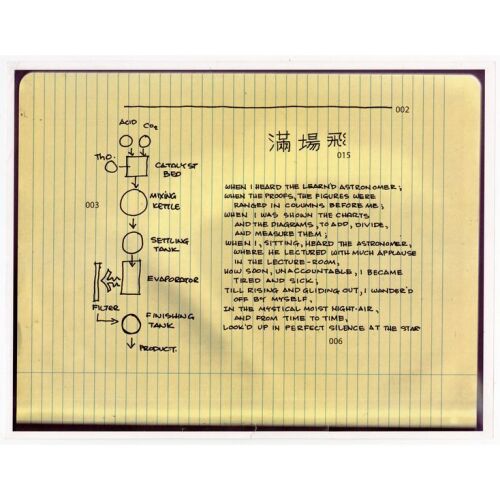 002
満場飛
015
ACID CO2
ThO.
CATALYST
BED
003
MIXING
KETTLE
SETTLING
TANK
EVAPORATOR
FILTER
FINISHING
TANK
PRODUCT.
WHEN I HEARD THE LEARN'D ASTRONOMER;
WHEN THE PROOFS, THE FIGURES WERE
RANGED IN COLUMNS BEFORE ME;
WHEN I WAS SHOWN THE CHARTS
AND THE DIAGRAMS, TO ADD, DIVIDE,
AND MEASURE THEM;
WHEN I, SITTING, HEARD THE ASTRONOMER,
WHERE HE LECTURED WITH MUCH APPLAUSE
IN THE LECTURE-ROOM,
HOW SOON, UNACCOUNTABLE, I BECAME
TIRED AND SICK;
TILL RISING AND GLIDING OUT, I WANDER'D
OFF BY MYSELF,
IN THE MYSTICAL MOIST NIGHT-AIR,
AND FROM TIME TO TIME,
LOOK'D UP IN PERFECT SILENCE AT THE STAR
006